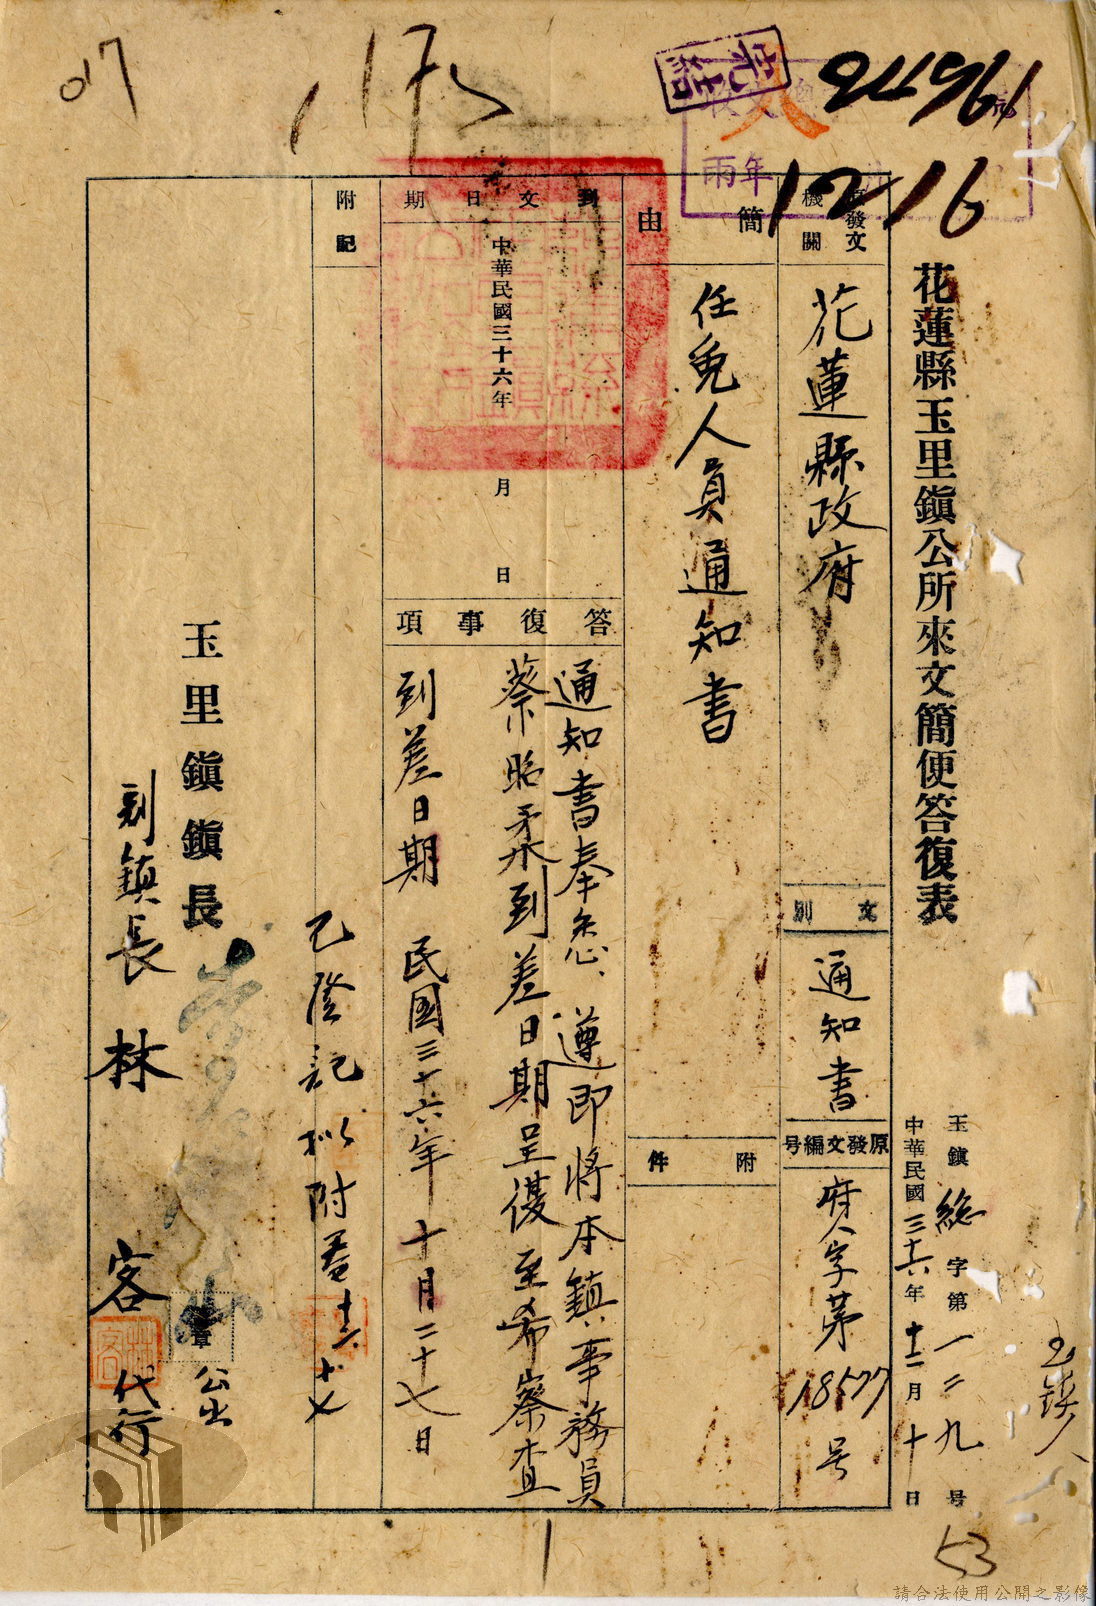 017
1175
完結
24961
12 16
花蓮縣玉里鎮公所來文簡便答復表
玉鎮總字第一二九号
中華民國三十六年十二月十日
原發文機關
花蓮縣政府
文別
通知書
原發文編号
府人字第18577号
簡由
任免人員通知書
附件
到文日期
中華民國三十六年 月 日
答復事項
通知書奉悉、遵即將本鎮事務員
蔡昭柔到差日期呈復至希察查
到差日期 民國三十六年十月二十七日
附記
已登記拟附卷 十二 十七
玉里鎮鎮長
章
公出
副鎮長 林 客 代行
林客
玉鎮人
53
請合法使用公開之影像